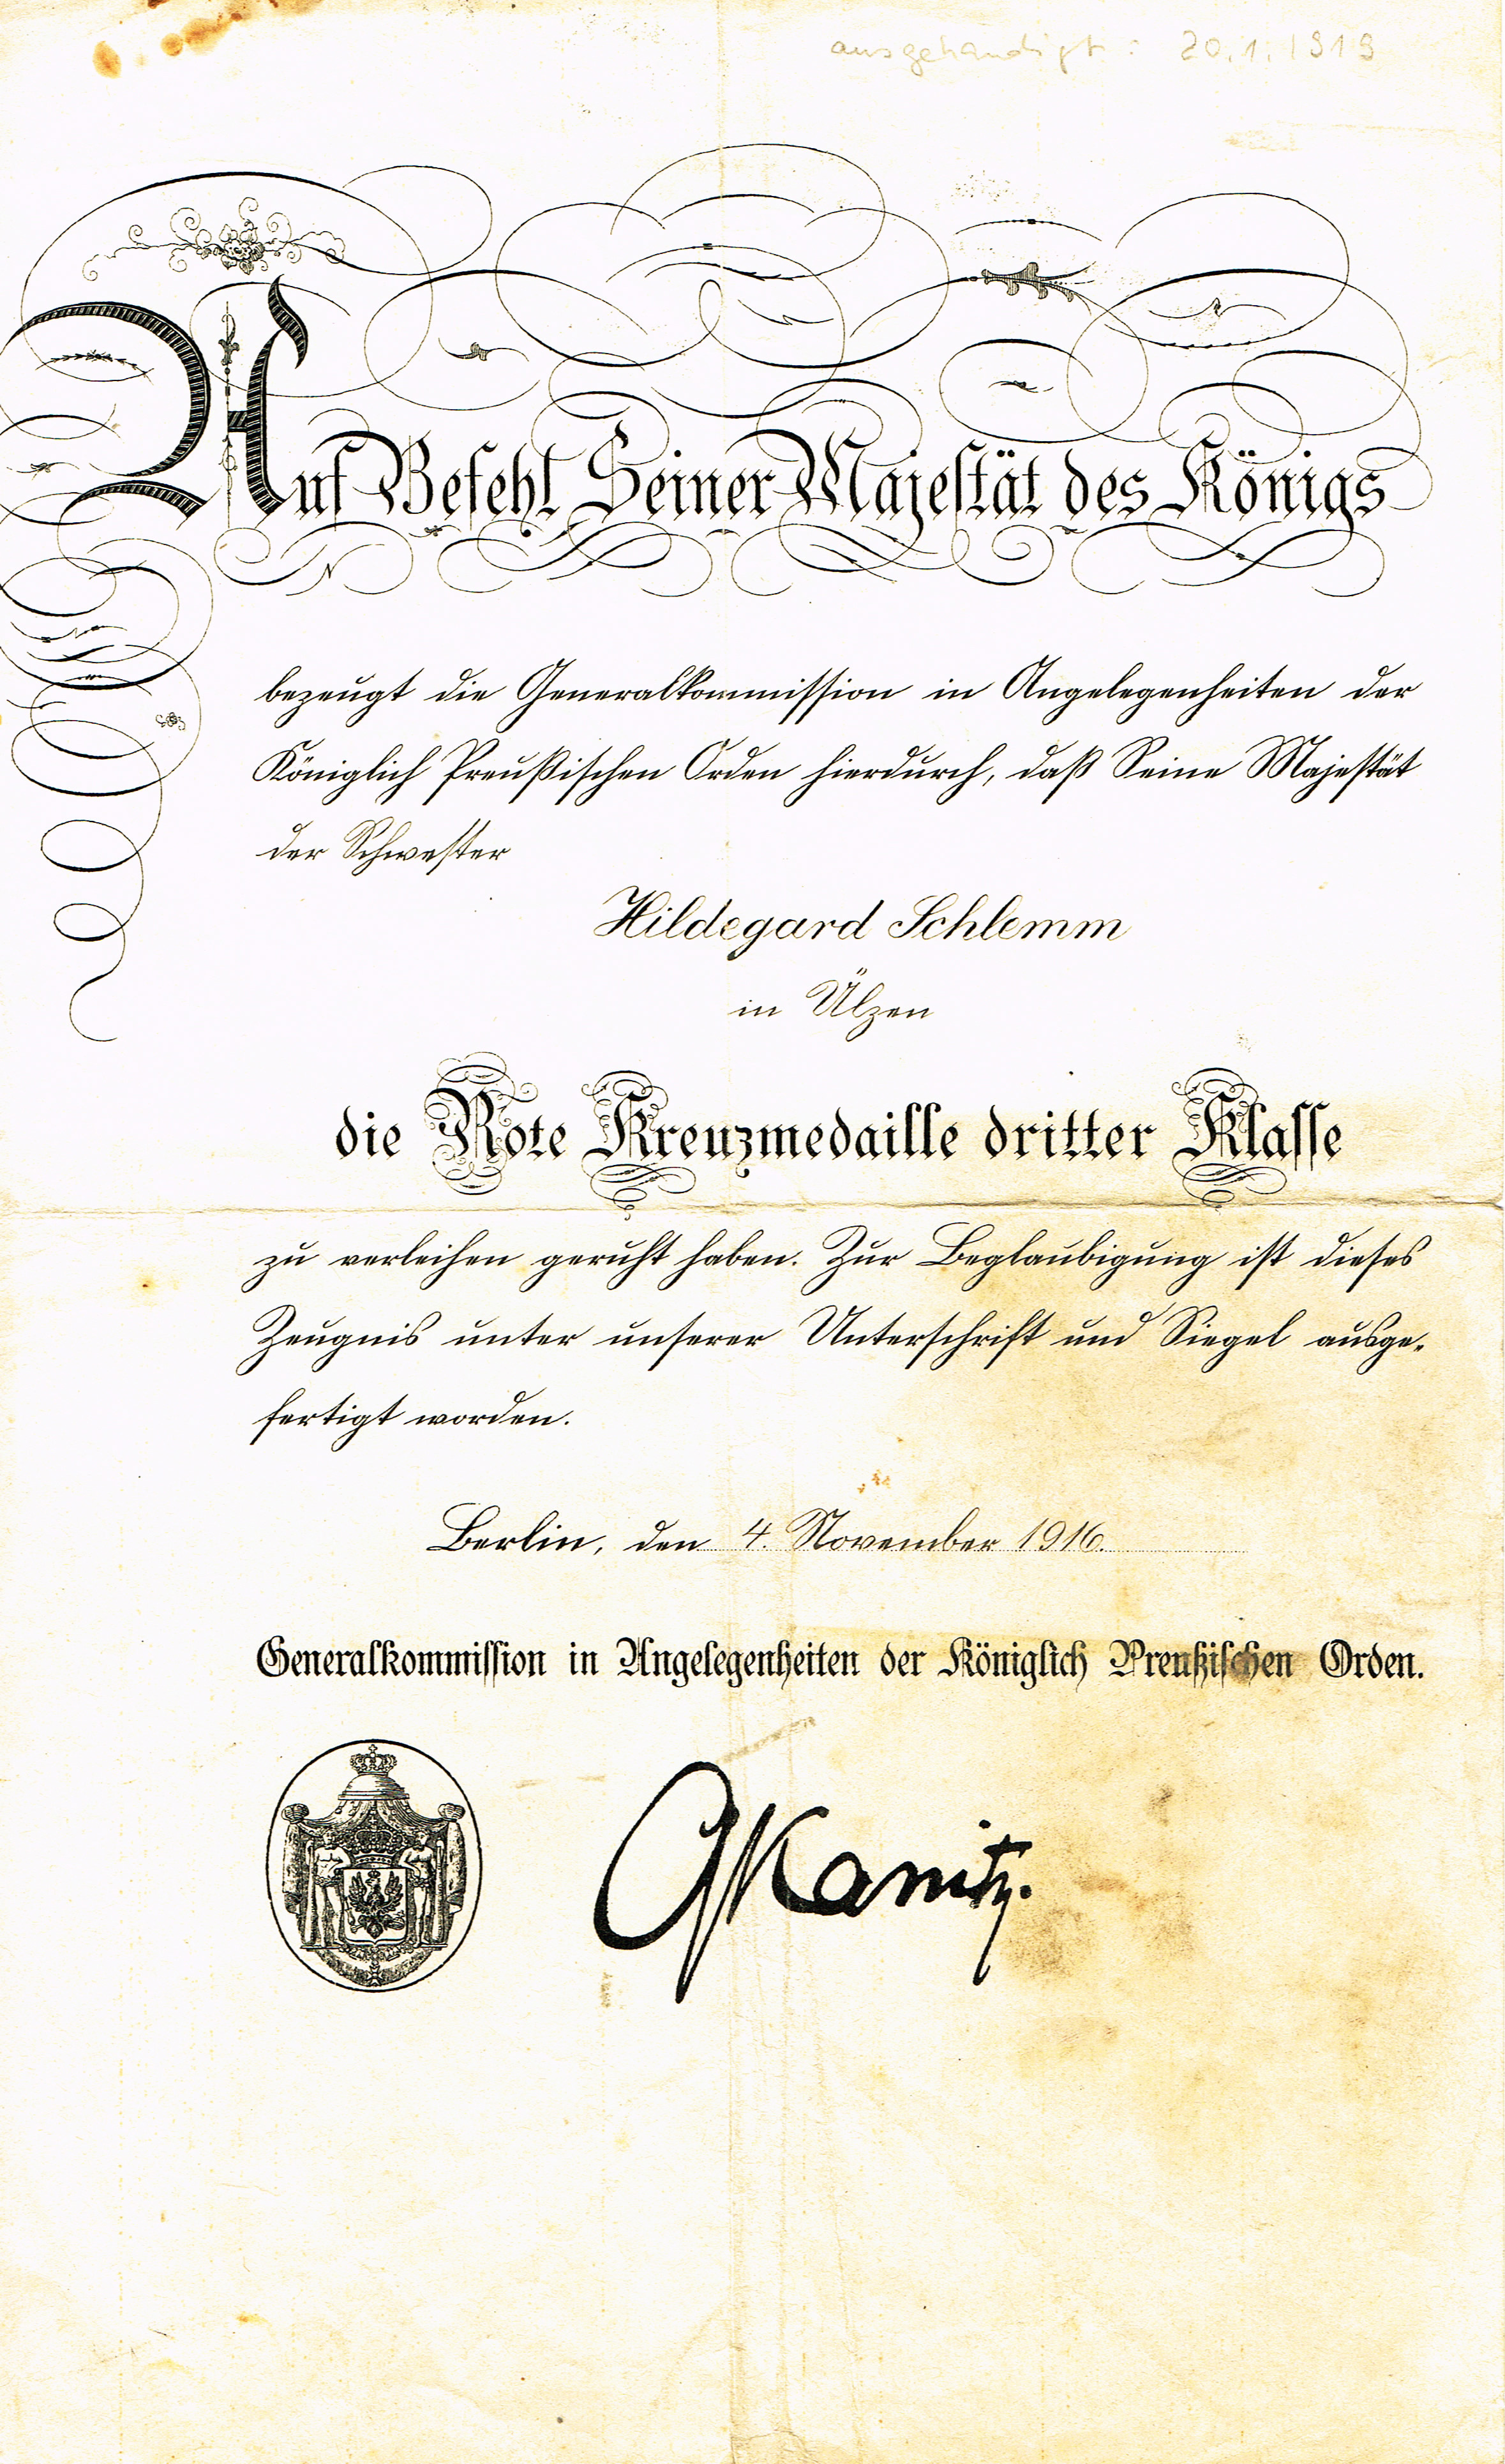 ausgehändigt: 20.1.1919
Auf Befehl Seiner Majestät des Königs
bezeugt die Generalkommission in Angelegenheiten der
Königlich Preußischen Orden hierdurch, daß Seine Majestät
der Schwester
Hildegard Schlemm
in Ülzen
die Rote Kreuzmedaille dritter Klasse
zu verleihen geruht haben. Zur Beglaubigung ist dieses
Zeugnis unter unserer Unterschrift und Siegel ausge-
fertigt worden.
Berlin, den 4. November 1916.
Generalkommission in Angelegenheiten der Königlich Preußischen Orden.
GKanitz.